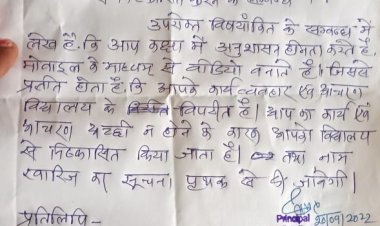 उपरोक्त विषयांकित के सम्बन्ध में
लेख है, कि आप कक्षा में अनुशासन हीनता करते है,
मोबाइल के माध्यम से वीडियो बनाते है। जिससे
प्रतीत होता है, कि आपके कार्य व्यवहार एवं आचरण
विद्यालय के विपरीत है। आप का कार्य एवं
आचरण अच्छा न होने के कारण आपको विद्यालय
से निष्कासित किया जाता है। तथा नाम
खारिज का सूचना पृथक से दी जावेगी।
Principal 20/09/2022
प्रतिलिपि -